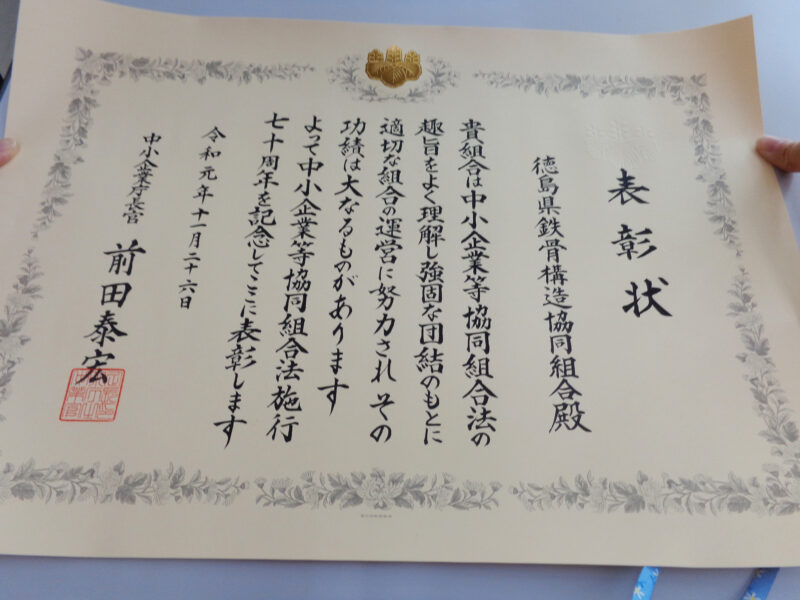 表彰状
徳島県鉄骨構造協同組合殿
貴組合は中小企業等協同組合法の
趣旨をよく理解し強固な団結のもとに
適切な組合の運営に努力されその
功績は大なるものがあります
よって中小企業等協同組合法施行
七十周年を記念してここに表彰します
令和元年十一月二十六日
中小企業庁長官
前田泰宏